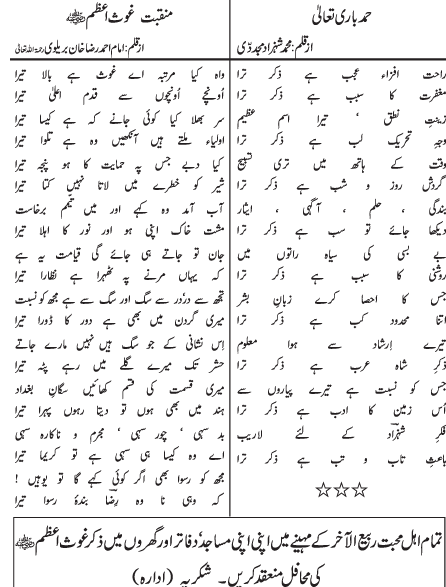 حمد باری تعالیٰ
از قلم: محمد شہزاد مجددی
راحت افزاء عجب ہے ذکر ترا
مغفرت کا سبب ہے ذکر ترا
زینتِ نطق ' تیرا اسم عظیم
وجہ تحریک لب ہے ذکر ترا
وقت کے ہاتھ میں تری تسبیح
گردشِ روز و شب ہے ذکر ترا
بندگی ، حلم ، آگہی ، ایثار
دیکھا جائے تو سب ہے ذکر ترا
بے بسی کی سیاہ راتوں میں
روشنی کا سبب ہے ذکر ترا
جس کا احصا کرے زبانِ بشر
اتنا محدود کب ہے ذکر ترا
تیرے ارشاد سے ہوا معلوم
ذکر شاہ عرب ہے ذکر ترا
جس کو نسبت ہے تیرے پیاروں سے
اُس زمین کا ادب ہے ذکر ترا
فکرِ شہزاد کے لئے لاریب
باعثِ تاب و تب ہے ذکر ترا
☆☆☆
منقبت غوث اعظم ﷺ
از قلم: امام احمد رضا خان بریلوی رحمۃ اللہ تعالیٰ
واہ کیا مرتبہ اے غوث ہے بالا تیرا
اُونچے اُونچوں سے قدم اعلیٰ تیرا
سر بھلا کیا کوئی جانے کہ ہے کیسا تیرا
اولیاء ملتے ہیں آنکھیں وہ ہے تلوا تیرا
کیا دبے جس پہ حمایت کا ہو پنجہ تیرا
شیر کو خطرے میں لاتا نہیں کتا تیرا
آب آمد وہ کہے اور میں تیمم برخاست
مشت خاک اپنی ہو اور نور کا اہلا تیرا
جان تو جاتے ہی جائے گی قیامت یہ ہے
کہ یہاں مرنے پہ ٹھہرا ہے نظارا تیرا
تجھ سے در،در سے سگ اور سگ سے ہے مجھ کو نسبت
میری گردن میں بھی ہے دور کا ڈورا تیرا
اِس نشانی کے جو سگ ہیں نہیں مارے جاتے
حشر تک میرے گلے میں رہے پٹہ تیرا
میری قسمت کی قسم کھائیں سگانِ بغداد
ہند میں بھی ہوں تو دیتا رہوں پہرا تیرا
بد سہی ' چور سہی ' مجرم و ناکارہ سہی
اے وہ کیسا ہی سہی ہے تو کریما تیرا
مجھ کو رسوا بھی اگر کوئی کہے گا تو یوہیں !
کہ وہی نا وہ رضؔا بندۂ رسوا تیرا
تمام اہل محبت ربیع الآخر کے مہینے میں اپنی اپنی مساجد' دفاتر اور گھروں میں ذکر غوث اعظم ﷺ
کی محافل منعقد کریں۔ شکریہ (ادارہ)